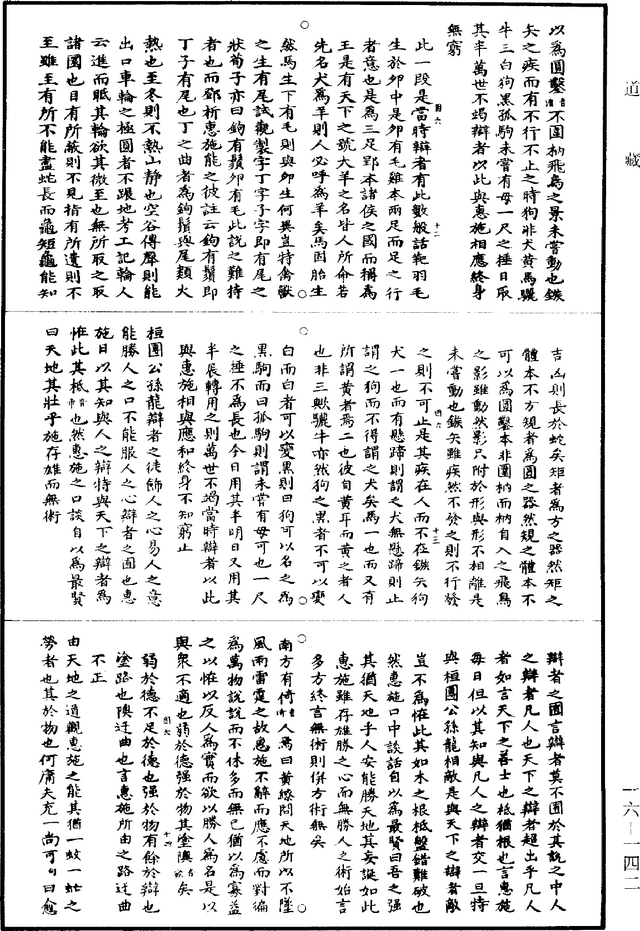 道藏
以為圓鑿不圍枘飛鳥之景未嘗動也鏃
矢之疾而有不行不止之時狗非犬黃馬驪
牛三白狗黑孤駒未嘗有母一尺之捶日取
其半萬世不竭辯者以此與惠施相應終身
無窮
此一段是當時辯者有此數般話靶羽毛
生於卵中是卵有毛雞本兩足而足之行
者意也是為三足郢本諸侯之國而稱為
王是有天下之號犬羊之名皆人所命若
先名犬為羊則人必呼為羊矣馬固胎生
然馬生下有毛則與卵生何異豈特禽獸
之生有尾試觀製字丁字子字即有尾之
狀荀子亦曰鉤有鬚卵有毛此說之難持
者也而鄧析惠施能之彼註云鉤有鬚即
丁子有尾也丁之曲者為鉤鬚與尾類火
熱也至冬則不熱山靜也空谷傳聲則能
出口車輪之極圓者不蹍地考工記輪人
云進而眡其輪欲其微至也無所取之取
諸圜也目有所蔽則不見指有所遺則不
至雖至有所不能盡蛇長而龜短龜能知
吉凶則長於蛇矣矩者為方之器然矩之
體本不方規者為圓之器然規之體本不
可以為圓鑿本非圍枘而枘自入之飛鳥
之影雖動然影只附於形與形不相離是
未嘗動也鏃矢雖疾然不發之則不行發
之則不可止是其疾在人而不在鏃矢狗
犬一也而有懸蹄則謂之犬無懸蹄則止
謂之狗而不得謂之犬矣馬一也而又有
所謂黃者為二也彼自黃耳而黃之者人
也非三歟驪牛亦然狗之黑者不可以變
白而白者可以變黑則曰狗可以名之為
黑駒而曰孤駒則謂未嘗有母可也一尺
之捶不為長也今日用其半明日又用其
半展轉用之則萬世不竭當時辯者以此
與惠施相與應和終身不知窮止
桓團公孫龍辯者之徒飾人之心易人之意
能勝人之口不能服人之心辯者之囿也惠
施日以其知與人之辯特與天下之辯者為
怪此其柢也然惠施之口談自以為最賢
曰天地其壯乎施存雄而無術
辯者之囿言辯者莫不囿於其說之中人
之辯者凡人也天下之辯者超出乎凡人
者如言天下之善士也柢猶根也言惠施
每日但以其知與凡人之辯者交一旦特
與桓團公孫龍相敵是與天下之辯者敵
豈不為怪此其如木之根柢盤錯難破也
然惠施口中談話自以為最賢曰吾之強
其猶天地乎人安能勝天地其妄誕如此
惠施雖存雄勝之心而無勝人之術始言
多方終言無術則併方術無矣
南方有倚人焉曰黃繚問天地所以不墜
風雨雷霆之故惠施不辭而應不慮而對徧
為萬物說說而不休多而無已猶以為寡益
之以怪以反人為實而欲以勝人為名是以
與衆不適也弱於德強於物其塗隩矣
弱於德不足於德也強於物有餘於辯也
塗路也隩迂曲也言惠施所由之路迂曲
不正
由天地之道觀惠施之能其猶一蚊一虻之
勞者也其於物也何庸夫充一尚可曰愈
一六—一四二